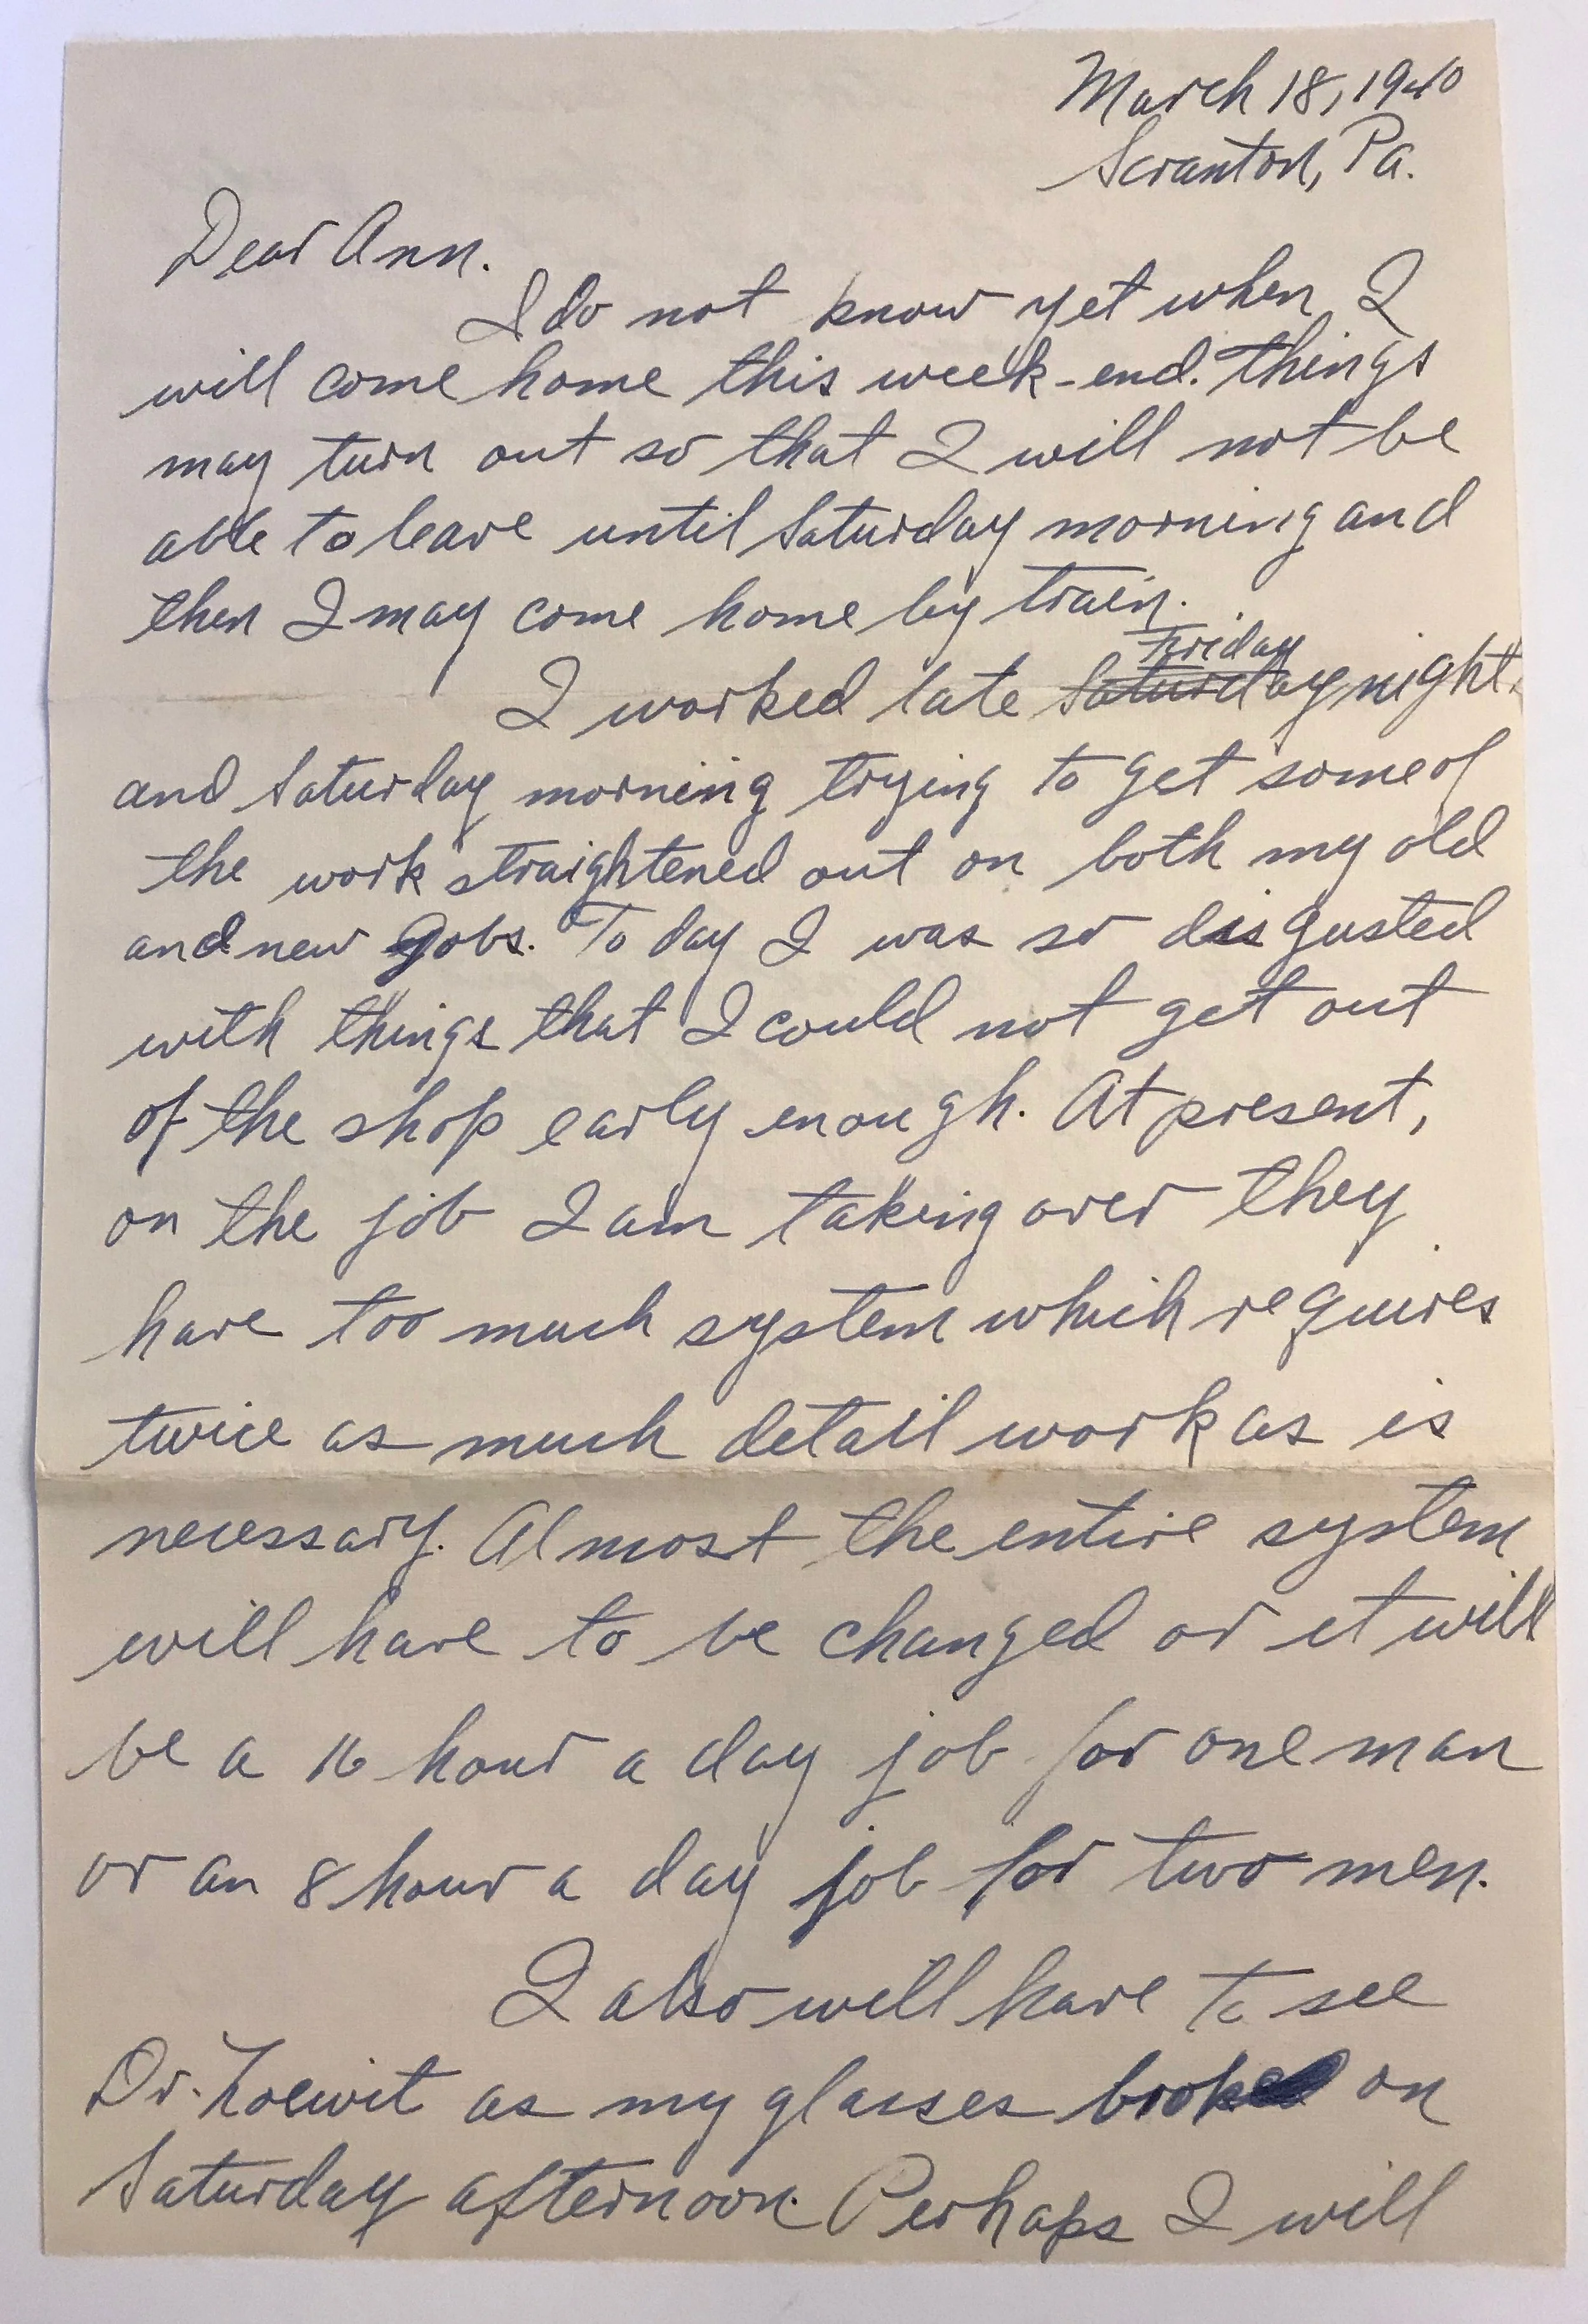 March 18, 1940
Scranton, Pa.
Dear Ann.
I do not know yet when I
will come home this week-end. things
may turn out so that I will not be
able to leave until Saturday morning and
then I may come home by train.
Friday
I worked late Saturday night.
and Saturday morning trying to get some of
the work straightened out on both my old
and new jobs. To day I was so disgusted
with things that I could not get out
of the shop early enough. At present,
on the job I am taking over they
have too much system which requires
twice as much detail work as is
necessary. Almost the entire system
will have to be changed or it will
be a 16 hour a day job for one man
or an 8 hour a day job for two men.
I also will have to see
Dr. as my glasses broke on
Saturday afternoon. Perhaps I will